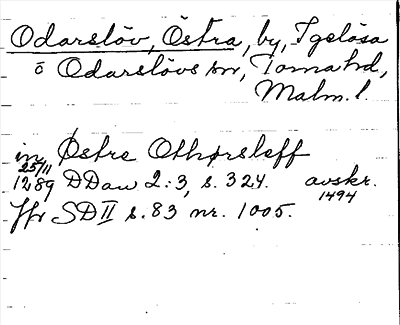 Odarslöv, Östra, by, Igelösa
o Odarslövs snr, Torna hd,
Malm. l.
in Østre Othørsleff
25/11
1289 DDan 2:3, s. 324. avskr.
1494
Jfr SD II s. 83 nr. 1005.